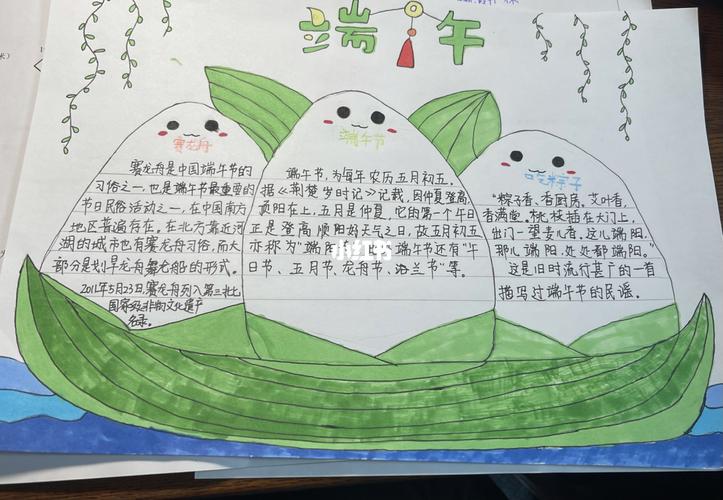 端午
赛龙舟
赛龙舟是中国端午节的
习俗之一,也是端午节最重要的
节日民俗活动之一,在中国南方
地区普遍存在。在北方靠近河
湖的城市也有赛龙舟习俗,而大
部分是划旱龙舟舞龙船的形式。
2011年5月23日,赛龙舟列入第三批
国家级非物文化遗产
名录。
端午节
端午节,为每年农历五月初五。
据《荆楚岁时记》记载,因仲夏登高,
顺阳在上,五月是仲夏,它的第一个午日
正是登高顺阳好天气之日,故五月初五
亦称为“端阳节”。端午节还有“午
日节、五月节、龙舟节、浴兰节”等。
吃粽子
“粽子香,香厨房。艾叶香,
香满堂。桃枝插在大门上,
出门一望麦儿黄。这儿端阳,
那儿端阳,处处都端阳。”
这是旧时流行甚广的一首
描写过端午节的民谣。
小红书